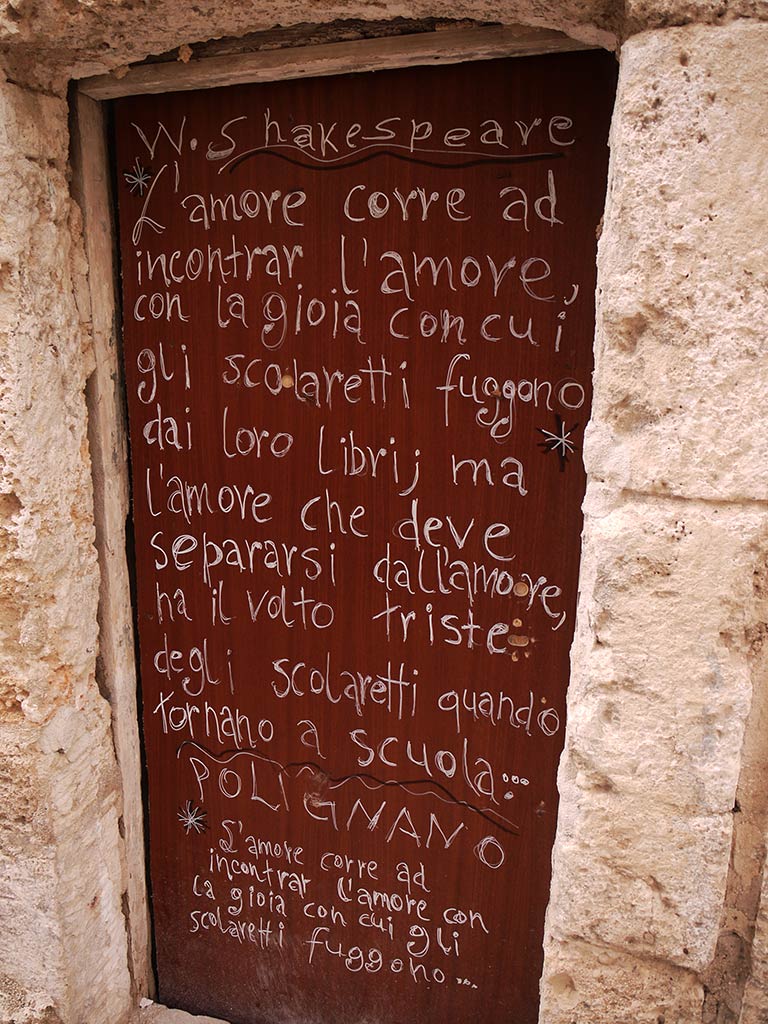 W. Shakespeare
L'amore corre ad
incontrar l'amore,
con la gioia con cui
gli scolaretti fuggono
dai loro libri, ma
l'amore che deve
separarsi dall'amore,
ha il volto triste
degli scolaretti quando
tornano a scuola...
POLIGNANO
L'amore corre ad
incontrar l'amore con
la gioia con cui gli
scolaretti fuggono...